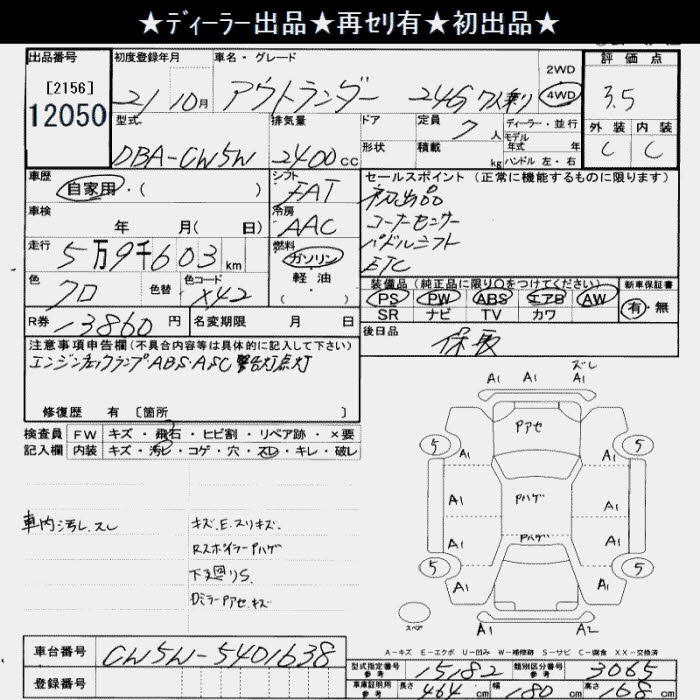 ★ディーラー出品★再セリ有★初出品★
出品番号 初度登録年月 車名・グレード 評価点
[2156] 21 10月 アウトランダー 24G 7人乗り 2WD 4WD 3.5
12050
型式 排気量 ドア 定員 7 人 ディーラー・並行 外装 内装
モデル 年式 年
DBA-CW5W 2400cc 形状 積載 kg ハンドル 左・右 C C
車歴 シフト セールスポイント(正常に機能するものに限ります)
自家用・( ) FAT 初出品
車検 冷房 コーナーセンサー
年 月( 日) AAC パドルシフト
走行 燃料 ETC
5万9千603km ガソリン
軽油
( )
色 色替 色コード 装備品(純正品に限り○をつけてください) 新車保証書
クロ X42 PS PW ABS エアB AW 有・無
SR ナビ TV カワ
R券 13860円 名変期限 月 日 後日品
保 取
注意事項申告欄(不具合内容等は具体的に記入して下さい)
エンジンチェックランプABS・ASC警告灯点灯
修復歴 有 [箇所 ]
検査員 FW キズ・飛石・ヒビ割・リペア跡・×要
記入欄 内装 キズ・汚レ・コゲ・穴・スレ・キレ・破レ
車内汚レ、スレ
キズ.E.スリキズ.
Rスポイラーハゲ
下廻りS.
DミラーPアセ.キズ
スレ
A1 A1 A2
Pアセ
5 A1 A1 5
A1 Pハゲ A1
A1 Pハゲ A1
5 A1 A1 5
スペア A1 A2
A-キズ E-エクボ U-凹み W-補修跡 S-サビ C-腐食 XX-交換済
車台番号 CW5W-5401638
登録番号
型式指定番号 参考 15182 類別区分番号 参考 3065
車庫証明用 参考 長さ 464cm 幅 180cm 高さ 168cm